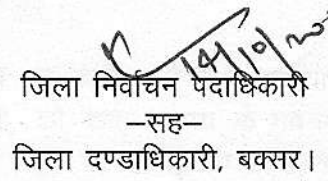 14/10/20
जिला निर्वाचन पदाधिकारी
–सह–
जिला दण्डाधिकारी, बक्सर।